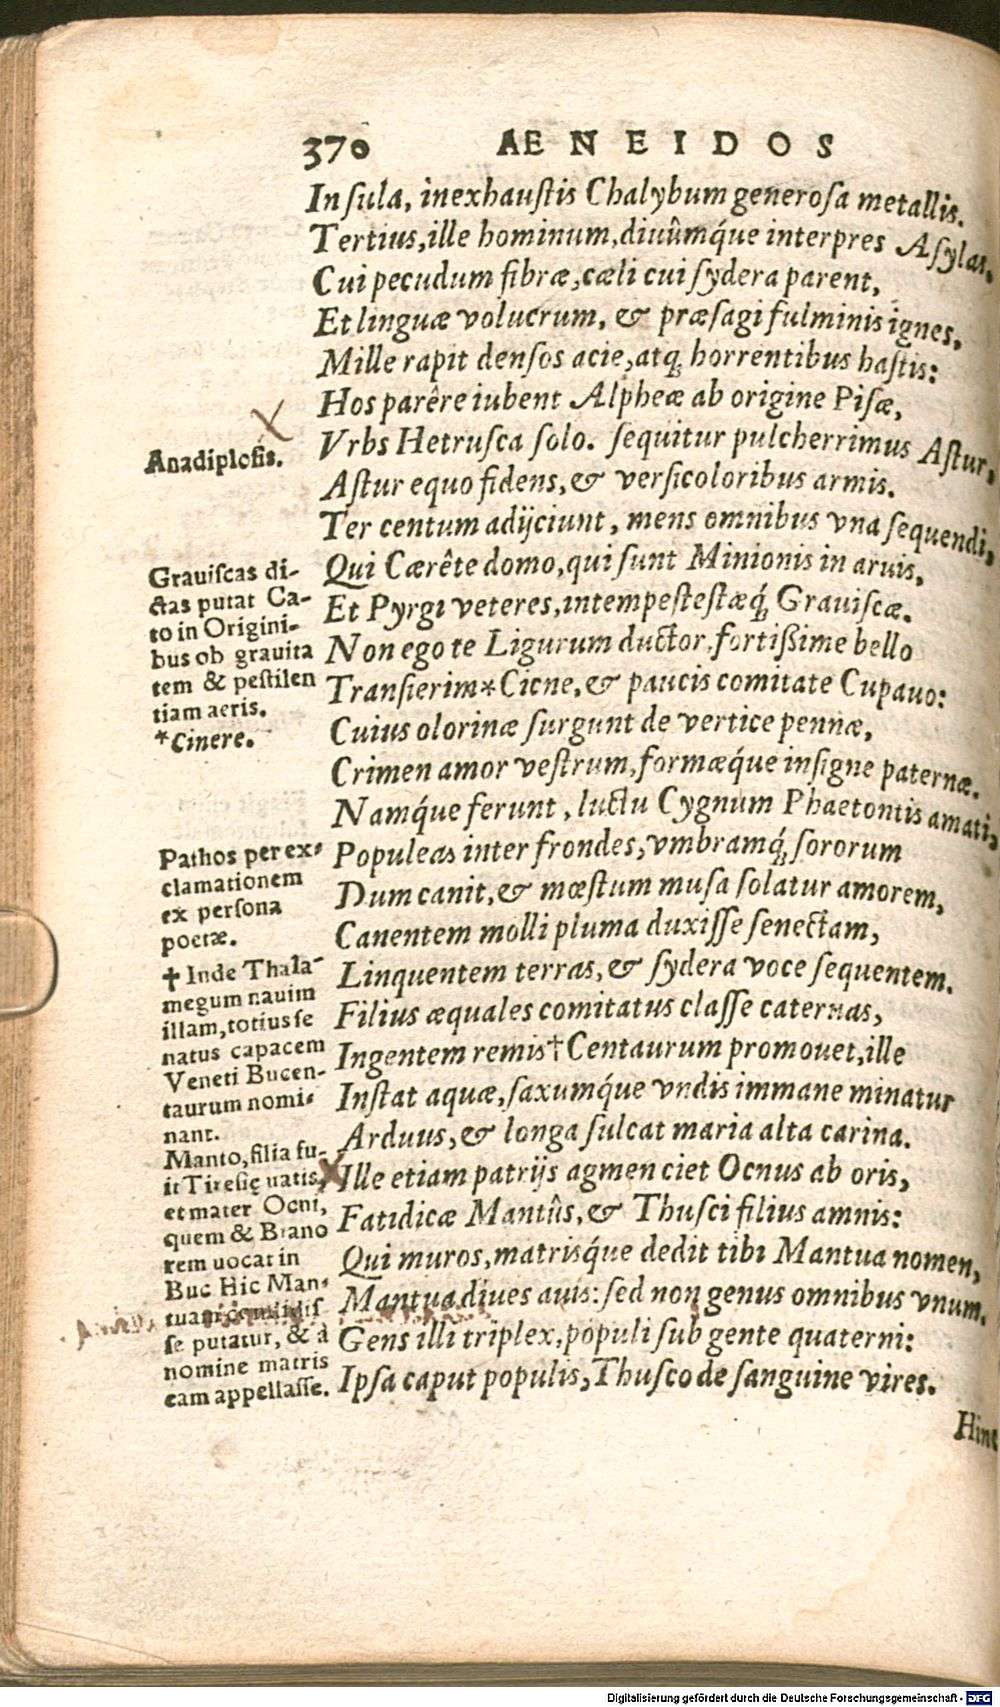 370 AENEIDOS
Insula, inexhaustis Chalybum generosa metallis.
Tertius, ille hominum, diuûmq́ue interpres Asylas,
Cui pecudum fibræ, cæli cui sydera parent,
Et linguæ volucrum, & præsagi fulminis ignes,
Mille rapit densos acie, atq; horrentibus hastis:
Hos parêre iubent Alpheæ ab origine Pisæ,
Vrbs Hetrusca solo. sequitur pulcherrimus Astur,
Astur equo fidens, & versicoloribus armis.
Ter centum adijciunt, mens omnibus vna sequendi,
Qui Cærête domo, qui sunt Minionis in aruis,
Et Pyrgi veteres, intempestestæq́; Grauiscæ.
Non ego te Ligurum ductor, fortißime bello
Transierim*Cicne, & paucis comitate Cupauo:
Cuius olorinæ surgunt de vertice pennæ,
Crimen amor vestrum, formæq́ue insigne paternæ.
Namq́ue ferunt, luctu Cygnum Phaetontis amati,
Populeas inter frondes, vmbramq́; sororum
Dum canit, & mœstum musa solatur amorem,
Canentem molli pluma duxisse senectam,
Linquentem terras, & sydera voce sequentem.
Filius æquales comitatus classe cateruas,
Ingentem remis†Centaurum promouet, ille
Instat aquæ, saxumq́ue vndis immane minatur
Arduus, & longa sulcat maria alta carina.
Ille etiam patrijs agmen ciet Ocnus ab oris,
Fatidicæ Mantûs, & Thusci filius amnis:
Qui muros, matrisq́ue dedit tibi Mantua nomen,
Mantua diues auis: sed non genus omnibus vnum.
Gens illi triplex, populi sub gente quaterni:
Ipsa caput populis, Thusco de sanguine vires.
Hinc
Anadiplosis.
Grauiscas di-
ctas putat Ca-
to in Origini-
bus ob grauita
tem & pestilen
tiam aeris.
*Cinere.
Pathos per ex-
clamationem
ex persona
poetæ.
† Inde Thala-
megum nauim
illam, totius se
natus capacem
Veneti Bucen-
taurum nomi-
nant.
Manto, filia fu-
it Tiresię uatis,
et mater Ocni,
quem & Biano
rem uocat in
Buc Hic Man-
tuam condidis
se putatur, & à
nomine matris
eam appellasse.
Digitalisierung gefördert durch die Deutsche Forschungsgemeinschaft - DFG